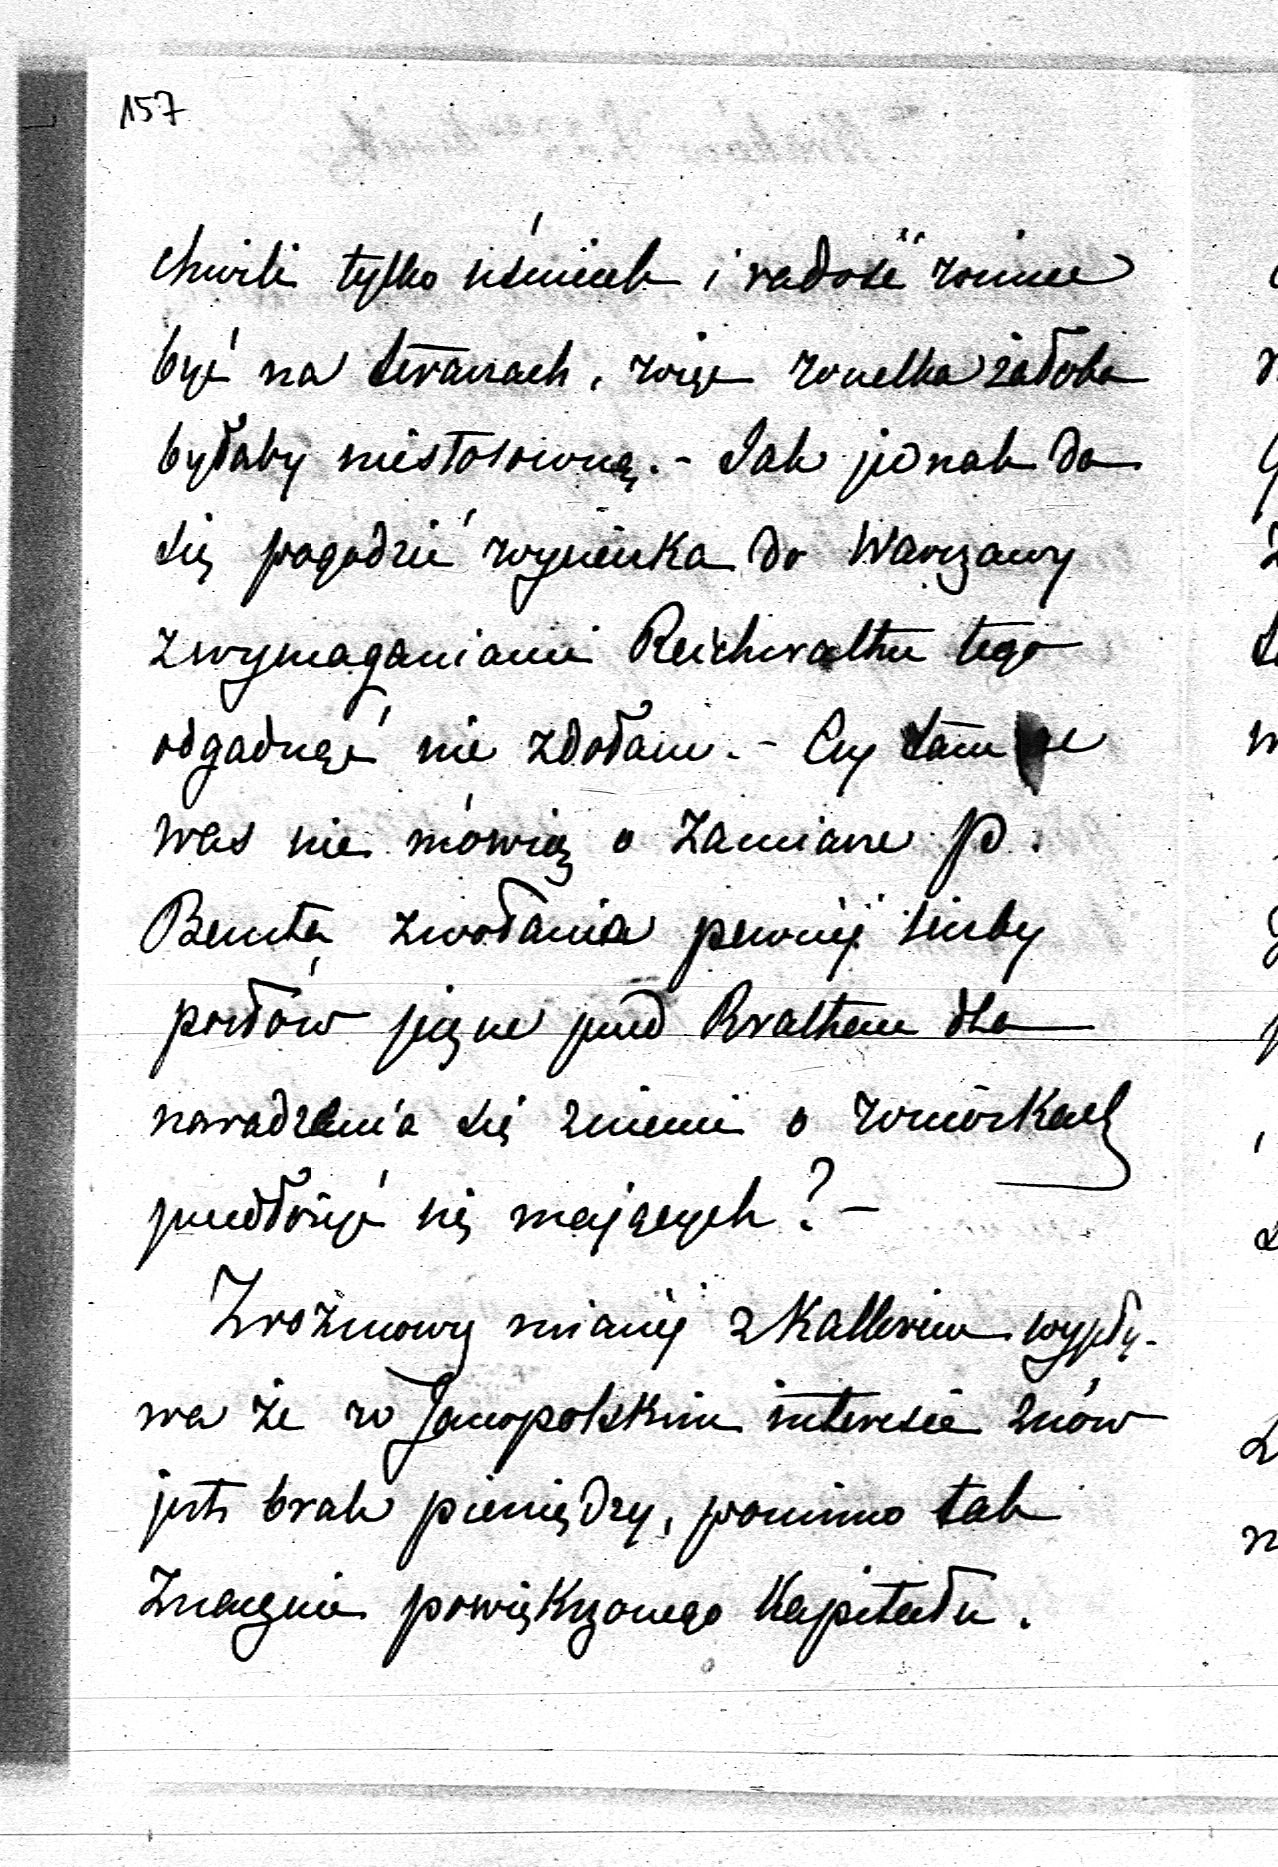 157
chwili tylko uśmiech i radość winne
być na twarzach, więc wszelka żałoba
byłaby niestosowną. - Jak jednak da
się pogodzić wycieczka do Warszawy
z wymaganiami Reichsrathu tego
odgadnąć nie zdołam. - Czy tam
was nie mówią o zamiarze p.
Beusta zwołania pewnéj liczby
posłów jeszcze przed Rrathem dla
naradzenia się z niemi o wnioskach
przedłożyć się mających? -
Z rozmowy mianéj z Kallerem wypły-
wa że w Janopolskim interesie znów
jest brak pieniędzy, pomimo tak
znacznie powiększonego Kapitału.